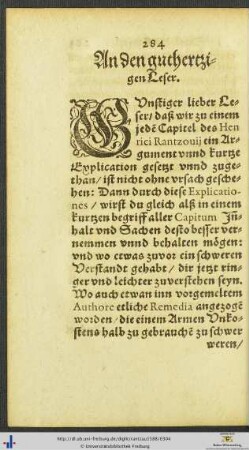 284
An den guthertzi-
gen Leser.
GVnstiger lieber Le-
ser/ daß wir zu einem
jedē Capitel des Hen
rici Rantzouij ein Ar-
gument vnnd kurtze
Explication gesetzt vnnd zuge-
than/ ist nicht ohne vrsach gesche-
hen: Dann durch diese Explicatio-
nes / wirst du gleich alß in einem
kurtzen begriff aller Capitum Jn-
halt vnd Sachen desto besser ver-
nemmen vnnd behalten mögen:
vnd wo etwas zuvor ein schweren
Verstandt gehabt/ dir jetzt rin-
ger vnd leichter zuverstehen seyn.
Wo auch etwan inn vorgemeltem
Authore etliche Remedia angezogē
worden/ die einem Armen Vnko-
stens halb zu gebrauchē zu schwer
weren/
http://dl.ub.uni-freiburg.de/diglit/rantzau1588/0304
© Universitätsbibliothek Freiburg